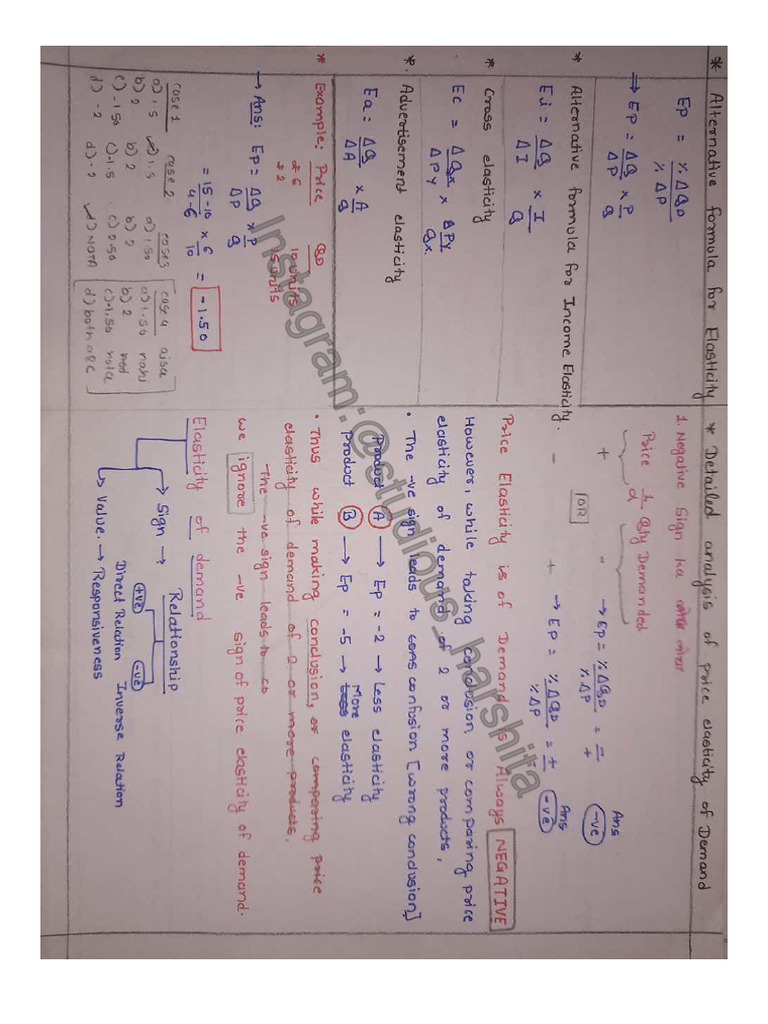 * Alternative formula for Elasticity
Ep = % ΔQD
% ΔP
⇒ Ep = ΔQ × P
ΔP Q
* Alternative formula for Income Elasticity.
Ei = ΔQ × I
ΔI Q
* Cross elasticity
Ec = ΔQx × PY
ΔPY Qx
*. Advertisement elasticity
Ea = ΔQ × A
ΔA Q
* Example: Price QD
₹6 10 units
₹2 15 units
→ Ans: Ep = ΔQ × P
ΔP Q
= 15-10 × 6 = -1.50
4-6 10
case 1 case 2 case 3 case 4 aisa
a) 1.5 a) 1.5 a) 1.50 a) 1.50 nahi
b) 2 b) 2 b) 2 b) 2
c) -1.50 c) -1.5 c) 0.50 c) -1.50 hota
d) -2 d) -2 d) NOTA d) both a & c
* Detailed analysis of price elasticity of Demand
1. Negative Sign ka
Price 1/α Qty Demanded
+ - → Ep = % ΔQD = - Ans
% ΔP + -ve
OR
- + → Ep = % ΔQD = + Ans
% ΔP - -ve
Price Elasticity is of Demand is Always NEGATIVE
However, while taking conclusion or comparing price
elasticity of demand of 2 or more products,
• The -ve sign leads to confusion [wrong conclusion]
Product A → Ep = -2 → Less elasticity
Product B → Ep = -5 → More elasticity
• Thus while making conclusion, or comparing price
elasticity of demand of 2 or more products,
The -ve sign leads to co
we ignore the -ve sign of price elasticity of demand.
Elasticity of demand
→ Sign → Relationship
+ve -ve
Direct Relation Inverse Relation
→ Value. → Responsiveness
Instagram:@studious_harshita